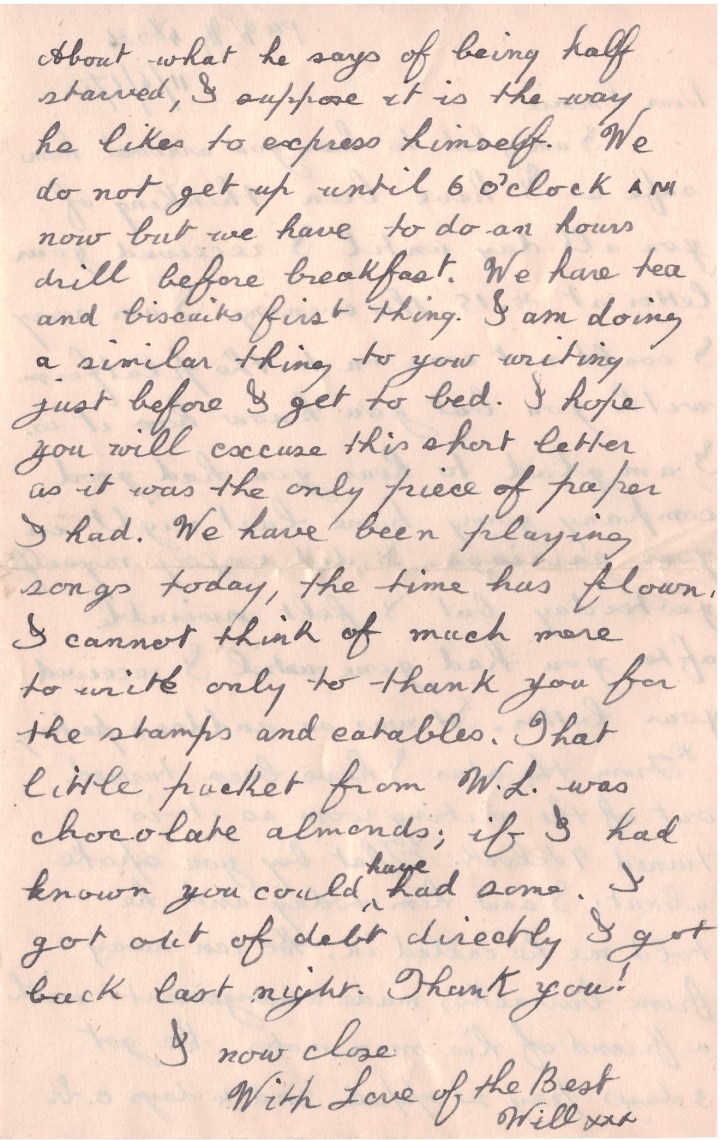 About what he says of being half
starved, I suppose it is the way
he likes to express himself. We
do not get up until 6 O'clock AM
now but we have to do an hours
drill before breakfast. We have tea
and biscuits first thing. I am doing
a similar thing to you writing
just before I get to bed. I hope
you will excuse this short letter
as it was the only piece of paper
I had. We have been playing
songs today, the time has flown.
I cannot think of much more
to write only to thank you for
the stamps and eatables. That
little packet from W.L. was
chocolate almonds; if I had
known you could have had some. I
got out of debt directly I got
back last night. Thank you!
I now close
With Love of the Best
Will xxx